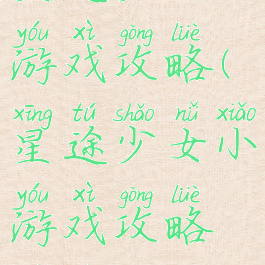 yóu xì gōng lüè
游戏攻略(
xīng tú shǎo nǚ xiǎo
星途少女小
yóu xì gōng lüè
游戏攻略